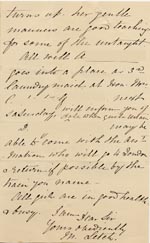 turns up. Her gentle
manners are good teaching
for some of the untaught
All well A
goes into a place as 3rd
laundry maid, at Iron
next
Saturday. will inform you of
may be
able to come with the
who will go to London
& return if possible by the
train you name.
All girls are in good health
& busy. I am Dear Sir
Yours obediently
M.